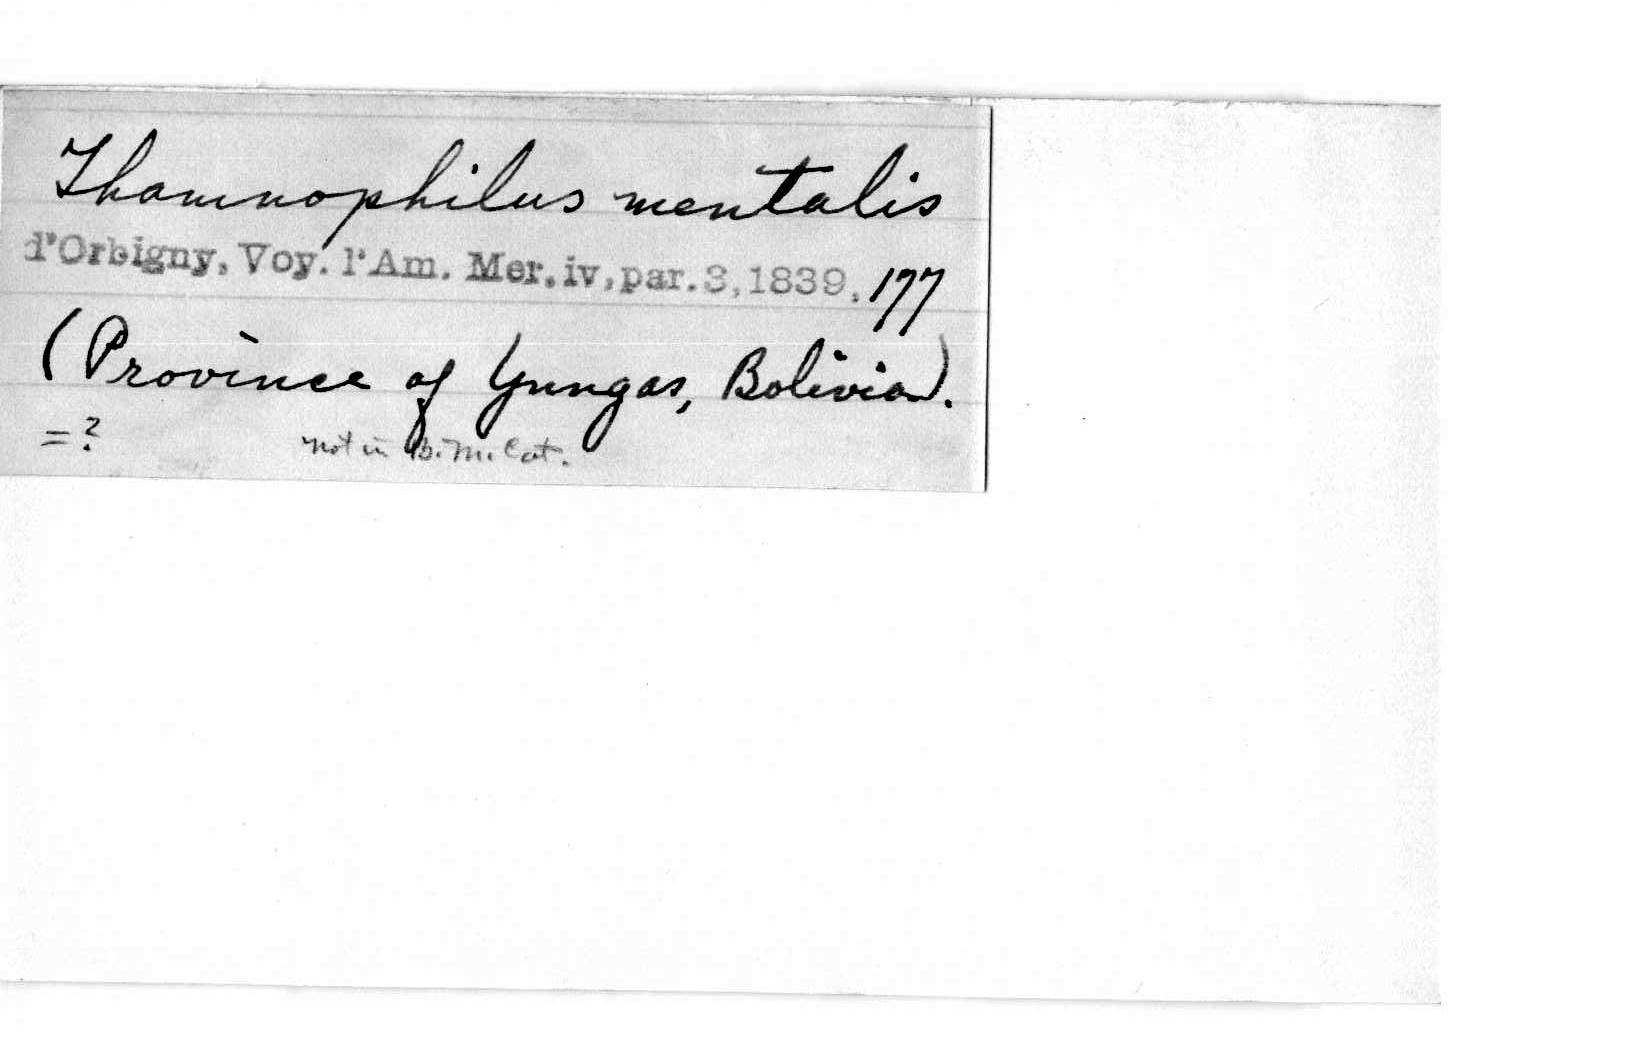 Thamnophilus mentalis
d'Orbigny, Voy. l'Am. Mer. iv, par. 3, 1839, 177
(Province of Yungas, Bolivia).
=? not in B. M. Cat.